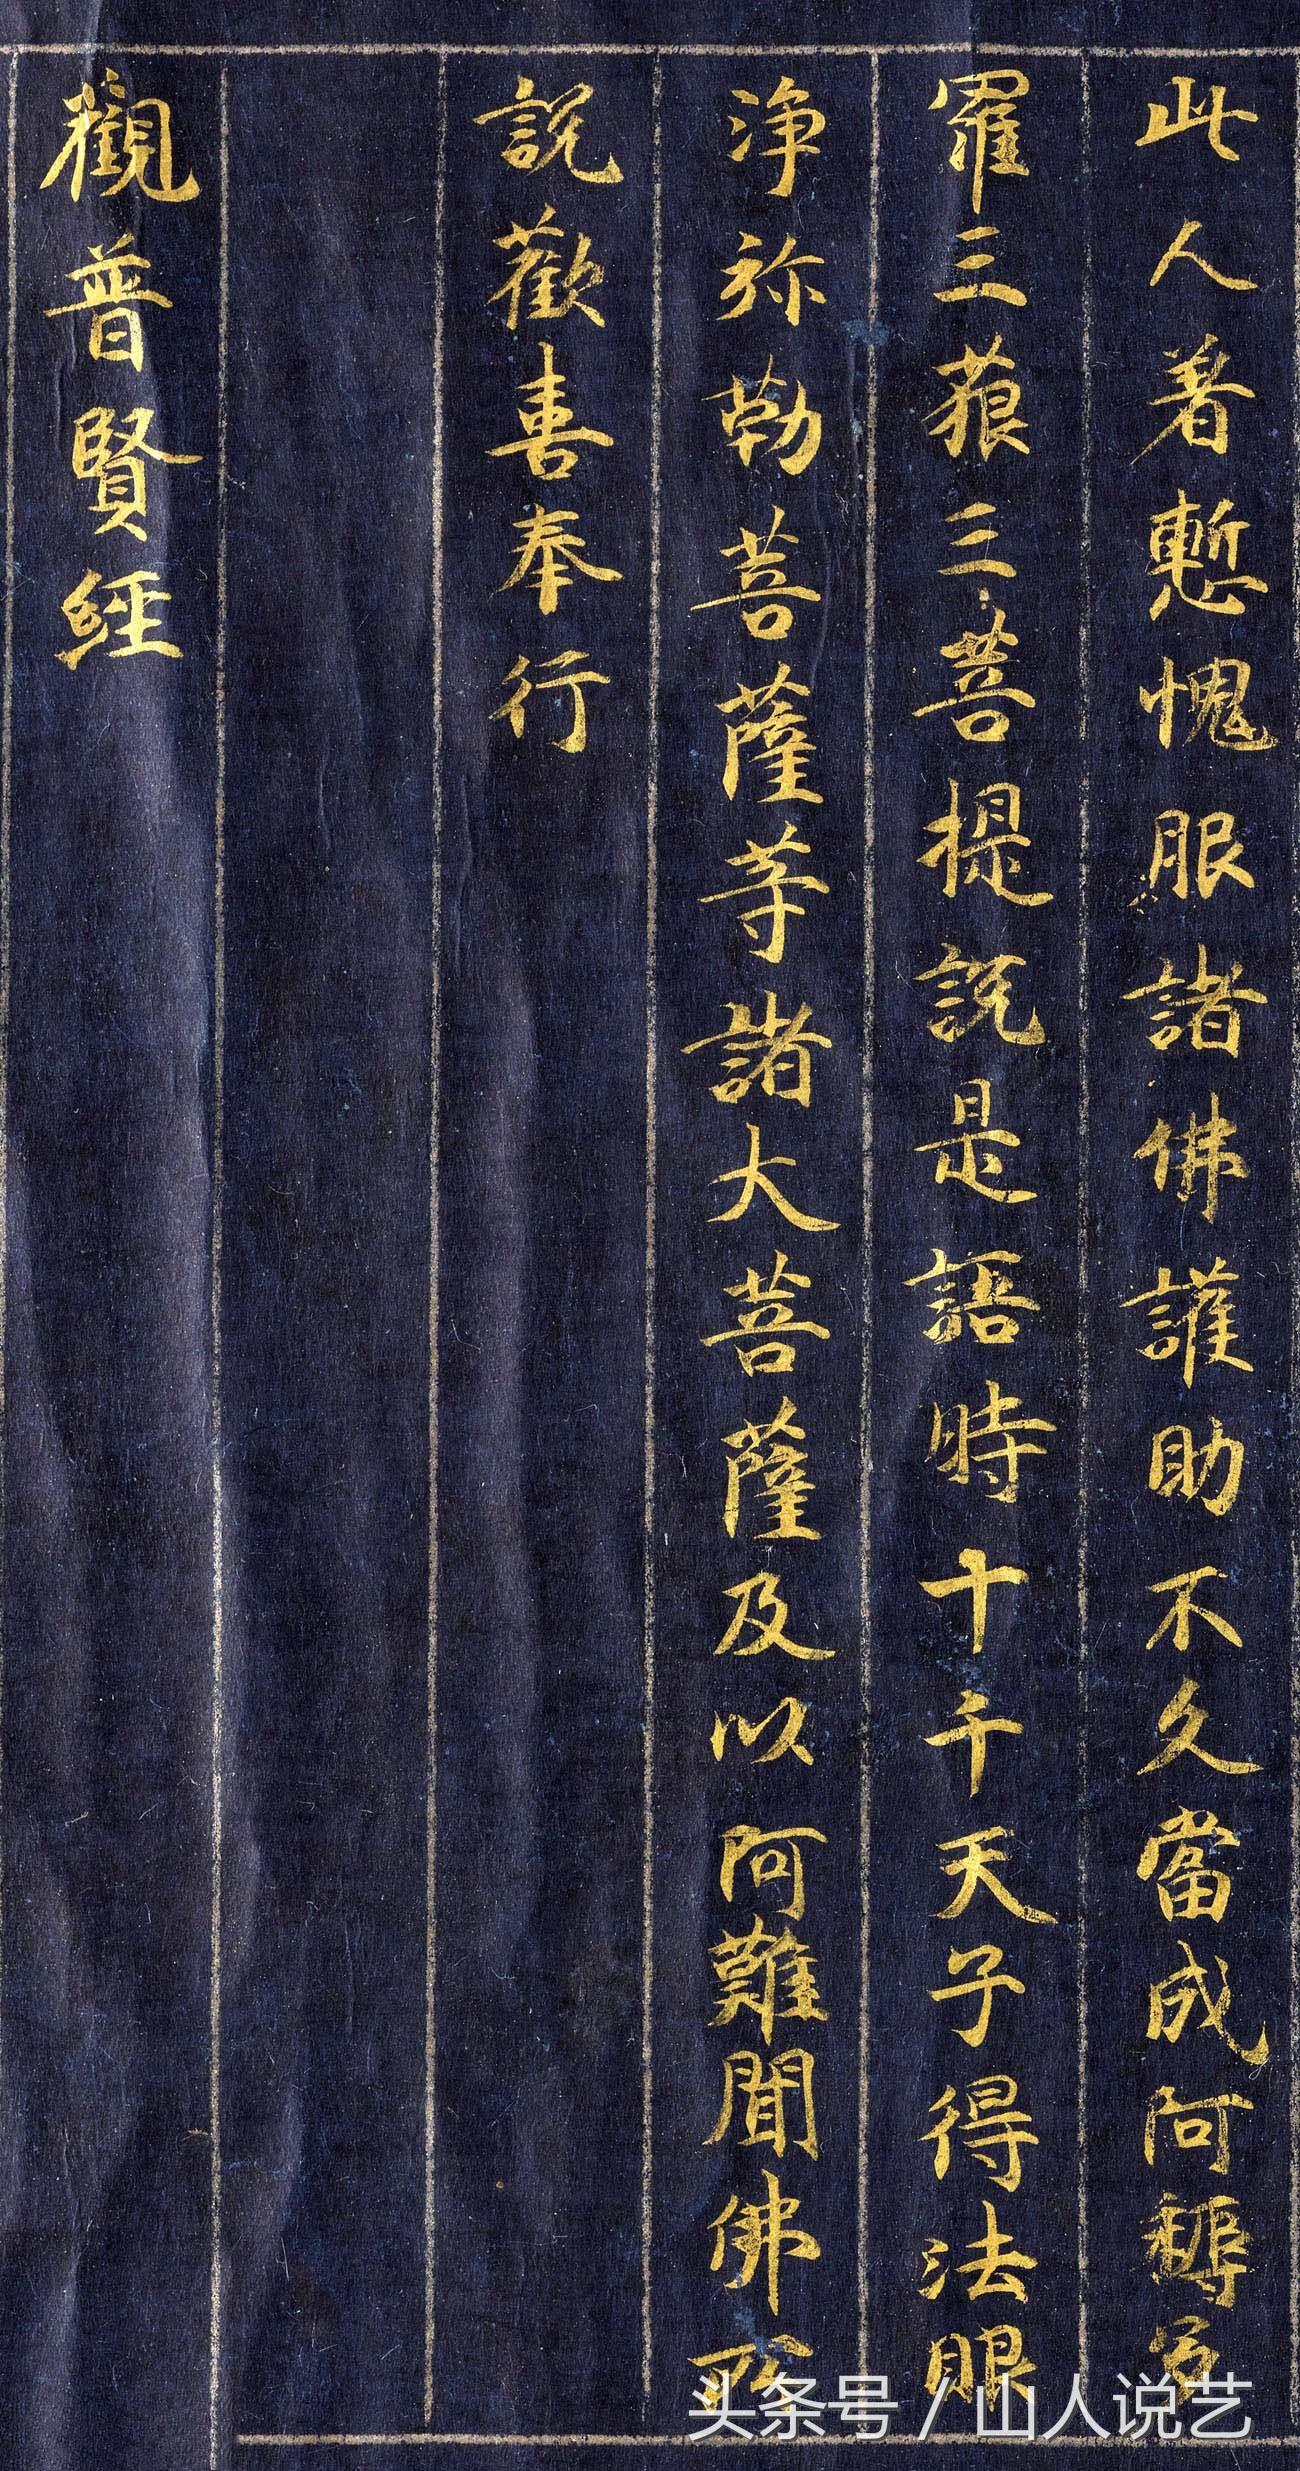 此人著慙愧服諸佛護助不久當成阿耨多
羅三藐三菩提說是語時十千天子得法眼
淨弥勒菩薩等諸大菩薩及以阿難聞佛所
說歡喜奉行
觀普賢經
头条号 / 山人说艺